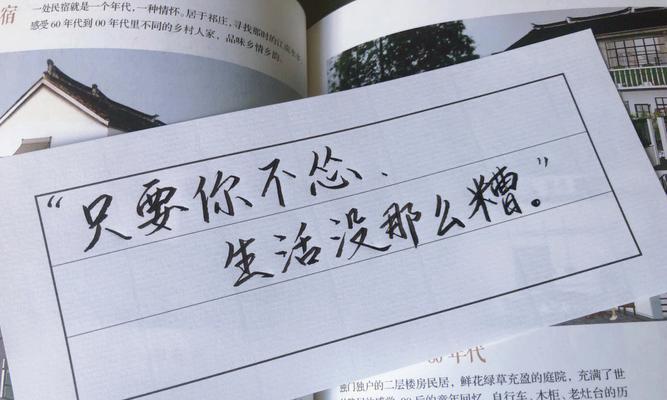 宿
一处民宿就是一个年代，一种情怀。居于祁庄，寻找那时的江南水乡，
感受 60 年代到 00 年代里不同的乡村人家，品味乡情乡韵。
“只要你不怂、
生活没那么糟。”
年代
独门独户的二层楼房民居，鲜花绿草充盈的庭院，充满了世
后的童年回忆，自行车、木柜、老灶台的历